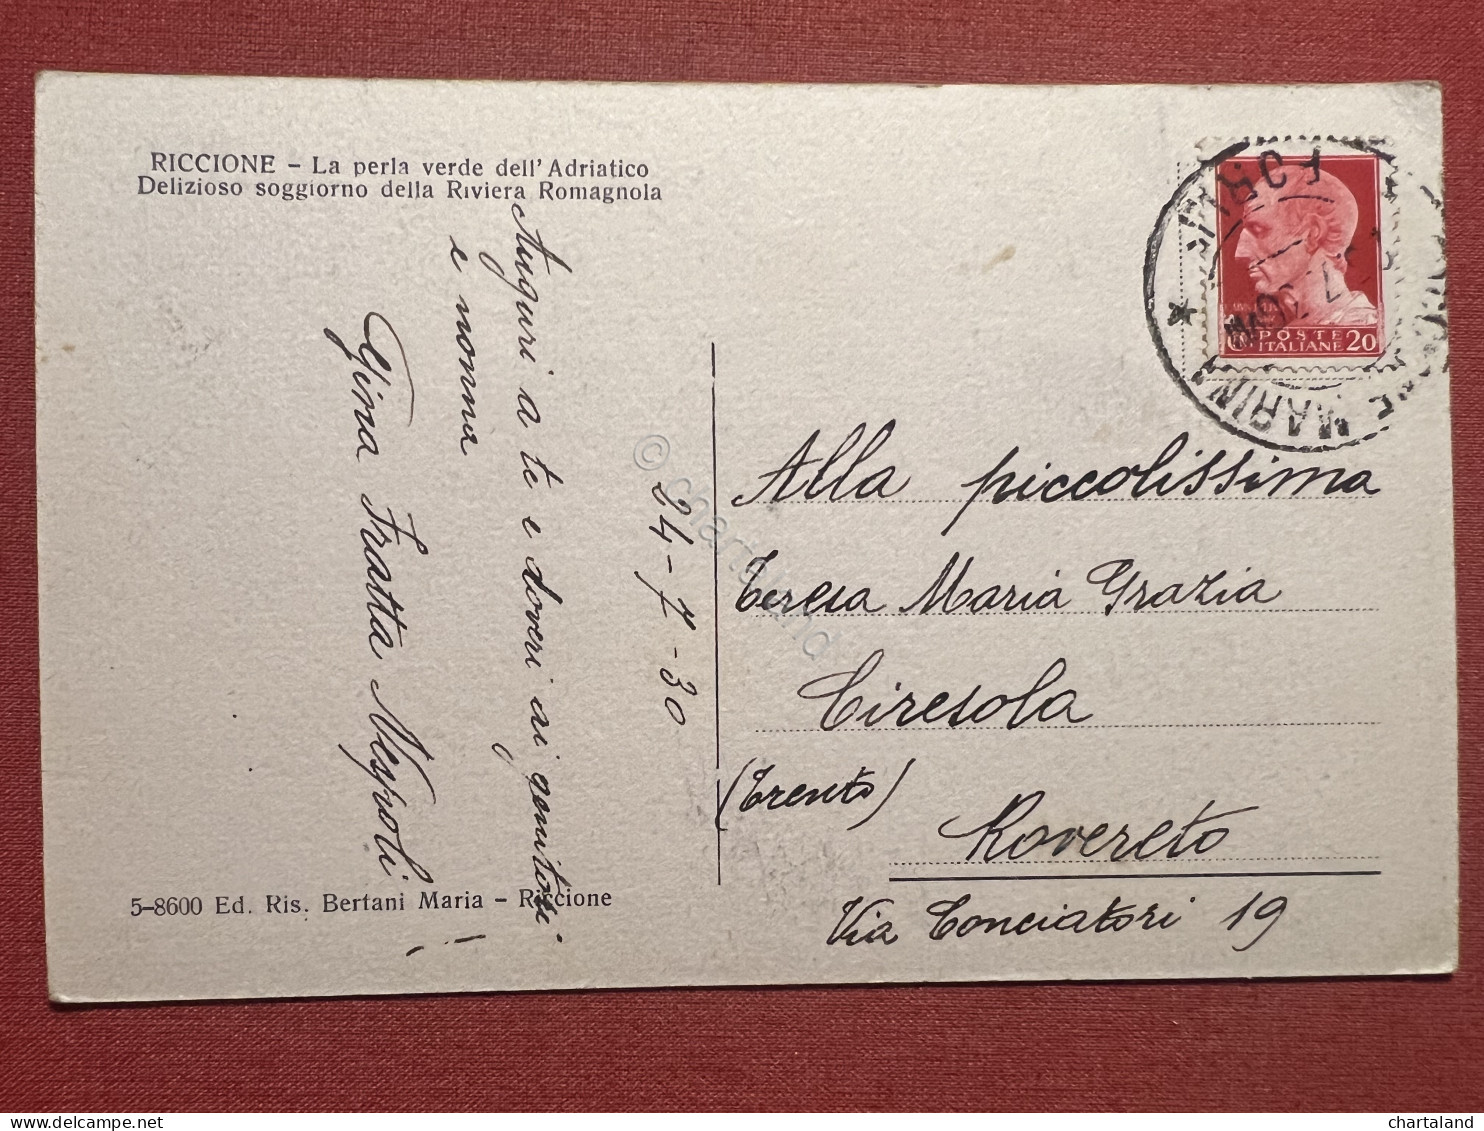 RICCIONE – La perla verde dell'Adriatico
Delizioso soggiorno della Riviera Romagnola
Auguri a te e doveri ai genitori
e nonna
Gina Fratta Nespoli
!
24-7-30
5-8600 Ed. Ris. Bertani Maria – Riccione
POSTE
ITALIANE 20
FORLI
MARIN
Alla piccolissima
Teresa Maria Grazia
Ciresola
(Trento)
Rovereto
Via Conciatori 19
© chartaland
chartaland